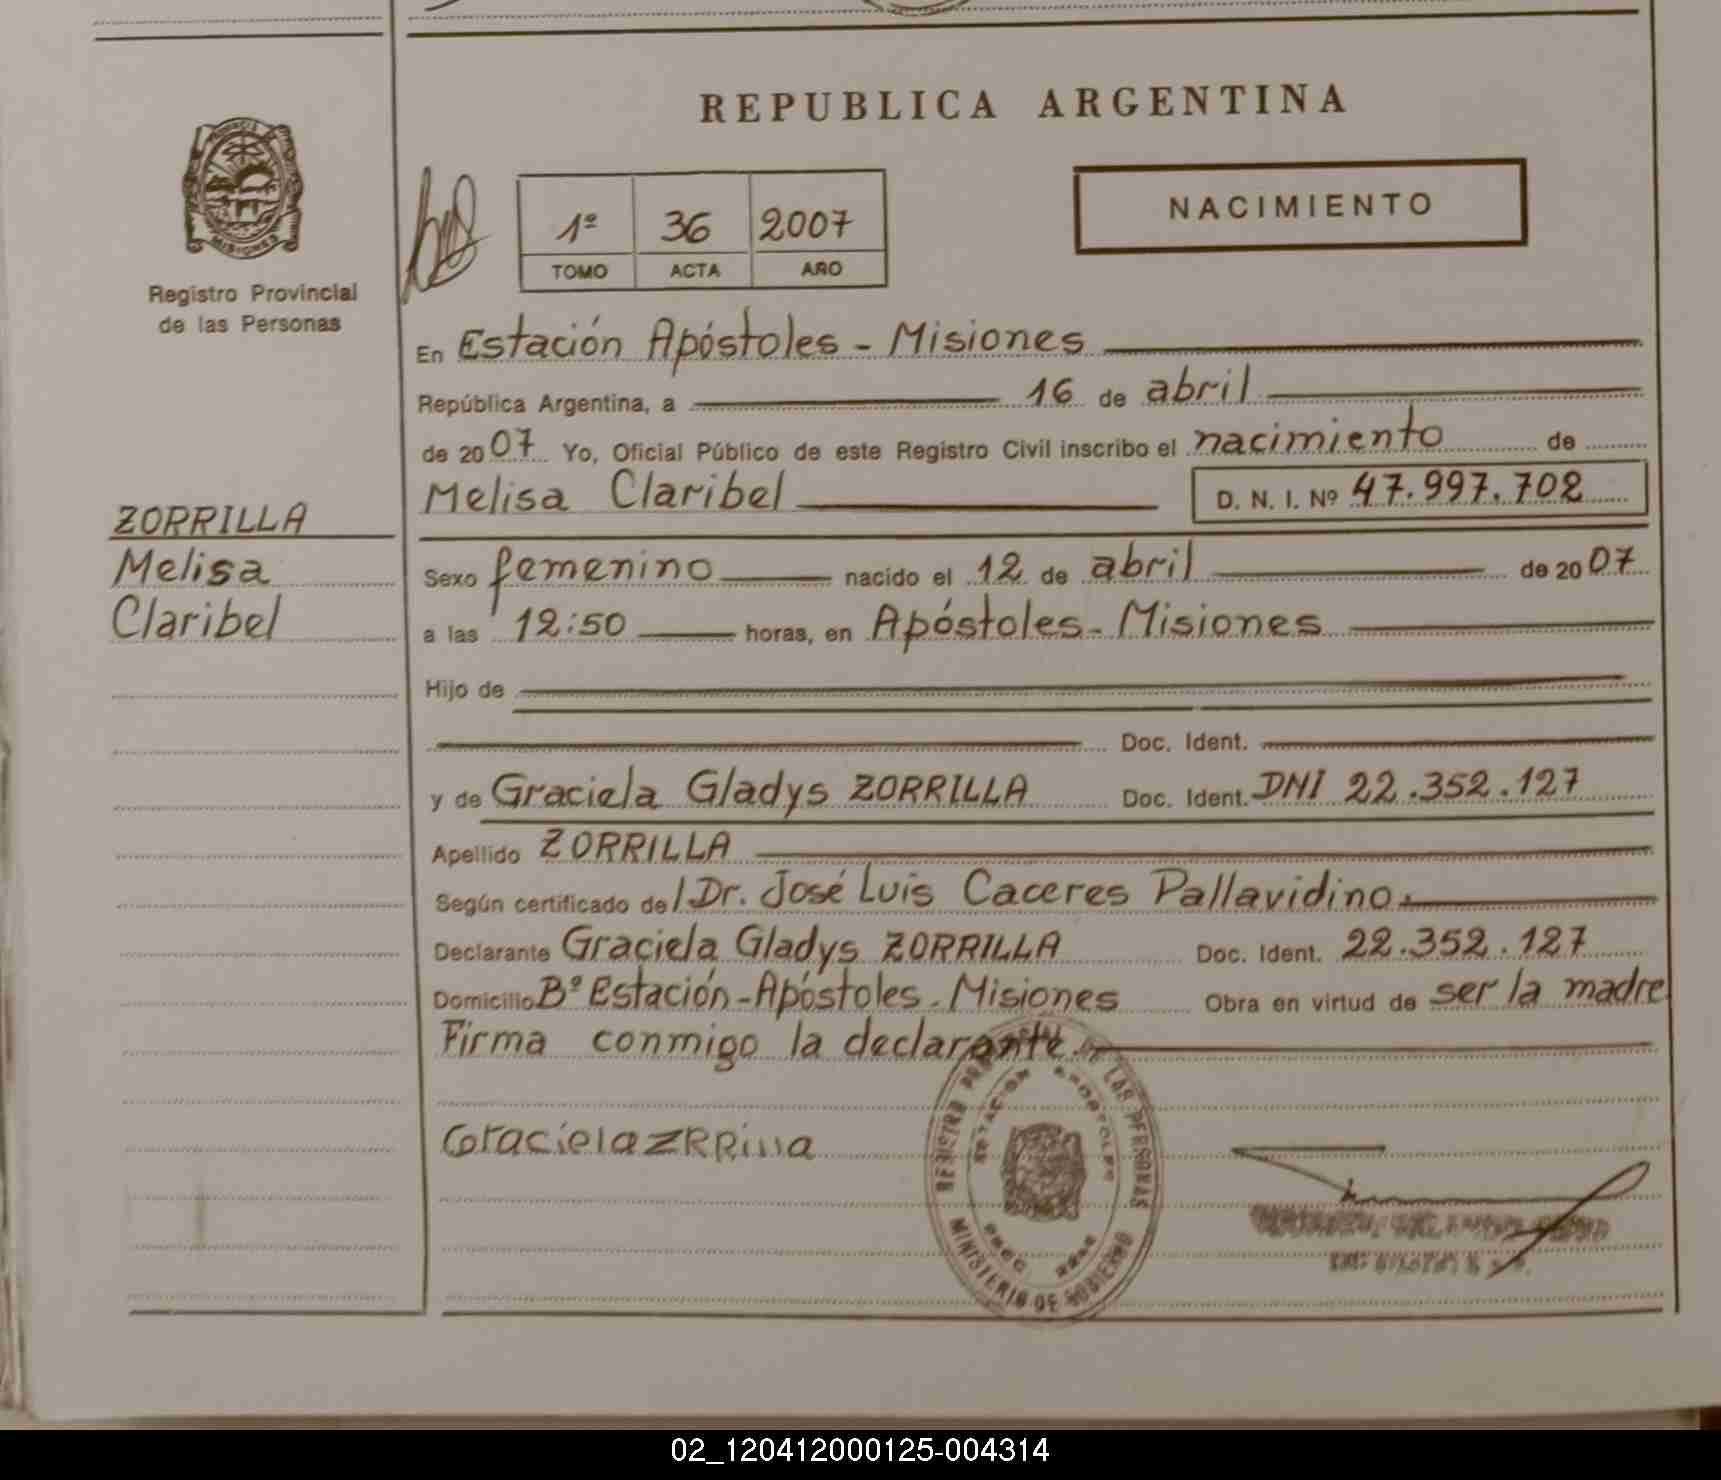 REPUBLICA ARGENTINA
MISIONES
Registro Provincial
de las Personas
1º 36 2007
TOMO ACTA AÑO
NACIMIENTO
En Estación Apóstoles - Misiones
República Argentina, a 16 de abril
de 2007 Yo, Oficial Público de este Registro Civil inscribo el nacimiento de
Melisa Claribel D. N. I. Nº 47.997.702
ZORRILLA
Melisa
Claribel
Sexo femenino nacido el 12 de abril de 2007
a las 12:50 horas, en Apóstoles - Misiones
Hijo de
Doc. Ident.
y de Graciela Gladys ZORRILLA Doc. Ident. DNI 22.352.127
Apellido ZORRILLA
Según certificado del Dr. José Luis Caceres Pallavidino.
Declarante Graciela Gladys ZORRILLA Doc. Ident. 22.352.127
Domicilio Bº Estación - Apóstoles - Misiones Obra en virtud de ser la madre
Firma conmigo la declarante.
GracielaZRRilla
REGISTRO PROVINCIAL DE LAS PERSONAS
ESTACION APOSTOLES
MINISTERIO DE GOBIERNO
02_120412000125-004314